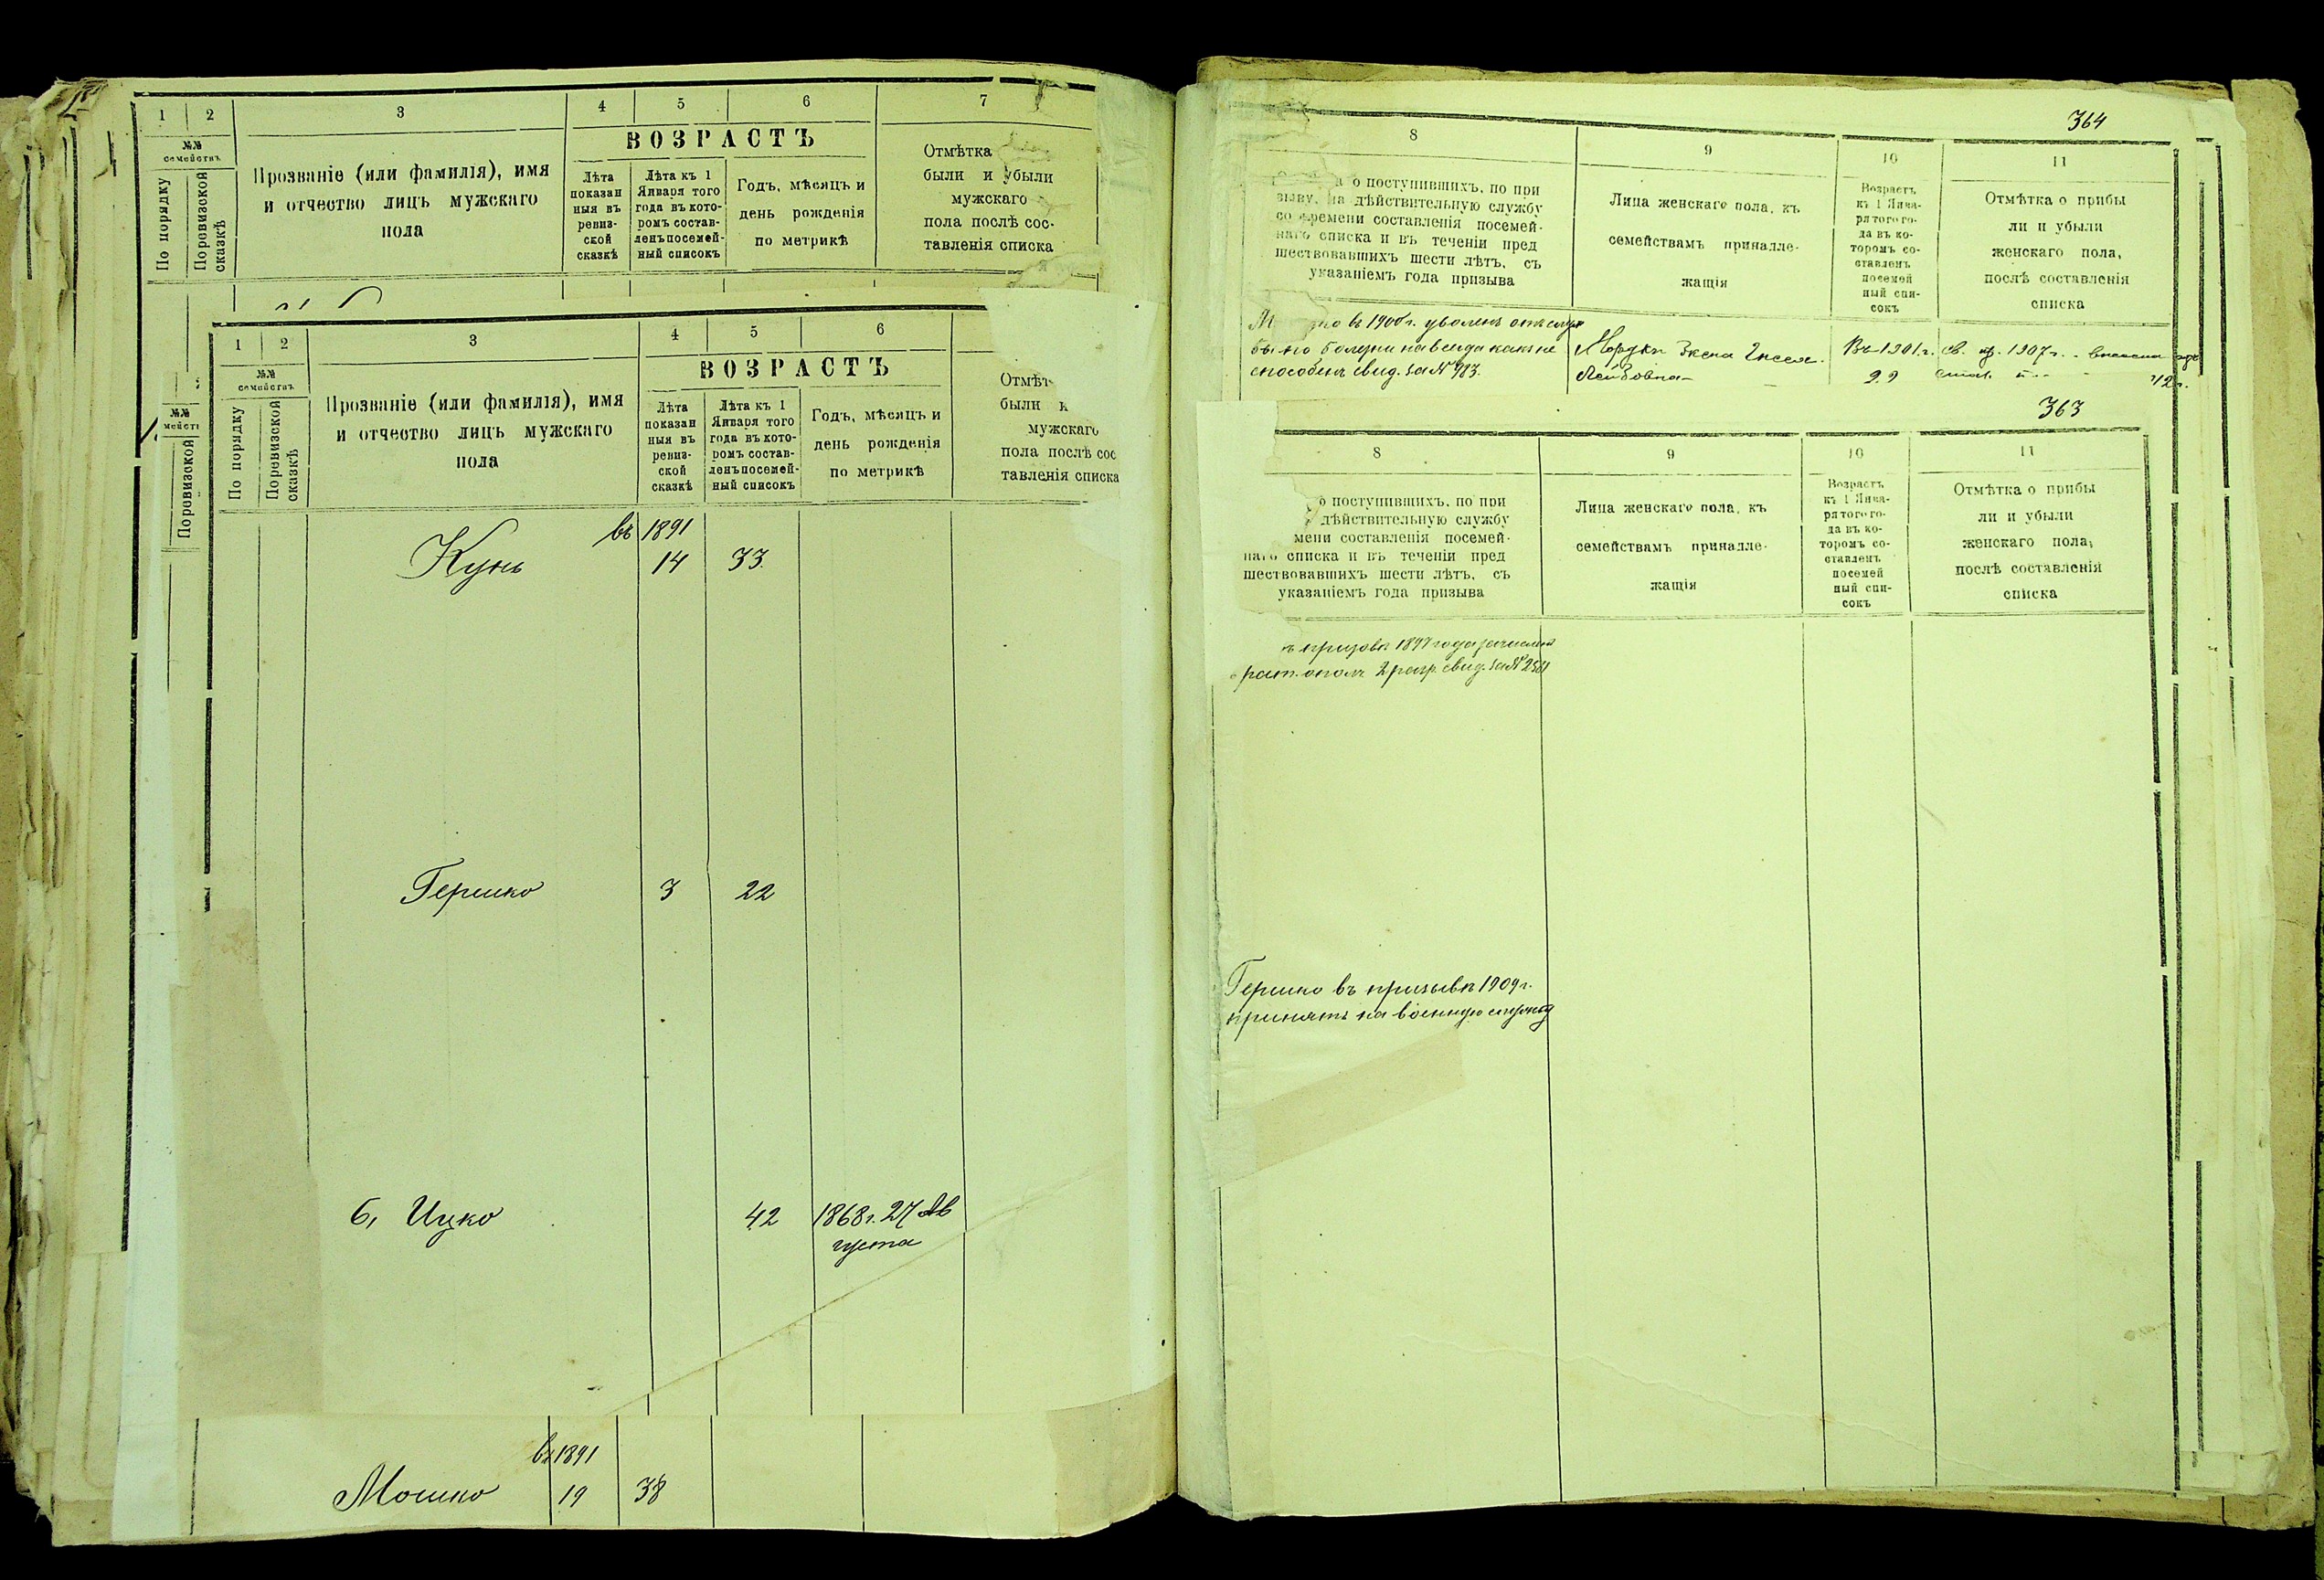 1 2 3 4 5 6 7
№№
семействъ
По порядку
Поревизской
сказкѣ
Прозваніе (или фамилія), имя
и отчество лицъ мужскаго
пола
ВОЗРАСТЪ
Лѣта
показан
ныя въ
ревиз-
ской
сказкѣ
Лѣта къ 1
Января того
года въ кото-
ромъ состав-
ленъ посемей-
ный списокъ
Годъ, мѣсяцъ и
день рожденія
по метрикѣ
Отмѣтка
были и убыли
мужскаго
пола послѣ сос-
тавленія списка
1 2 3 4 5 6
№№
семействъ
По порядку
Поревизской
сказкѣ
Прозваніе (или фамилія), имя
и отчество лицъ мужскаго
пола
ВОЗРАСТЪ
Лѣта
показан
ныя въ
ревиз-
ской
сказкѣ
Лѣта къ 1
Января того
года въ кото-
ромъ состав-
ленъ посемей-
ный списокъ
Годъ, мѣсяцъ и
день рожденія
по метрикѣ
Отмѣт
были
мужскаго
пола послѣ сос
тавленія списка
№№
мейст
Поревизской
въ 1891
Кунь 14 33
Гершко 3 22
6, Ицко 42 1868 г. 27 Ав
густа
въ 1891
Мошко 19 38
364
8 9 10 11
о поступившихъ, по при
зыву, на дѣйствительную службу
со времени составленія посемей-
наго списка и въ теченіи пред
шествовавшихъ шести лѣтъ, съ
указаніемъ года призыва
Лица женскаго пола, къ
семействамъ принадле-
жащія
Возрастъ
къ 1 Янва-
ря того го-
да въ ко-
торомъ со-
ставленъ
посемей
ный спи-
сокъ
Отмѣтка о прибы
ли и убыли
женскаго пола,
послѣ составленія
списка
въ 1900 г. уволенъ
навсегда какъ не
способенъ свид. за № 983.
Лейбовна
Въ 1901 г.
29
1907 г.
363
8 9 10 11
о поступившихъ, по при
дѣйствительную службу
мени составленія посемей-
наго списка и въ теченіи пред
шествовавшихъ шести лѣтъ, съ
указаніемъ года призыва
Лица женскаго пола, къ
семействамъ принадле-
жащія
Возрастъ
къ 1 Янва-
ря того го-
да въ ко-
торомъ со-
ставленъ
посемей
ный спи-
сокъ
Отмѣтка о прибы
ли и убыли
женскаго пола,
послѣ составленія
списка
1897 года зачисленъ
рат. опол. 2 разр. свид. за №
Гершко въ призывѣ 1909 г.
принятъ на военную службу